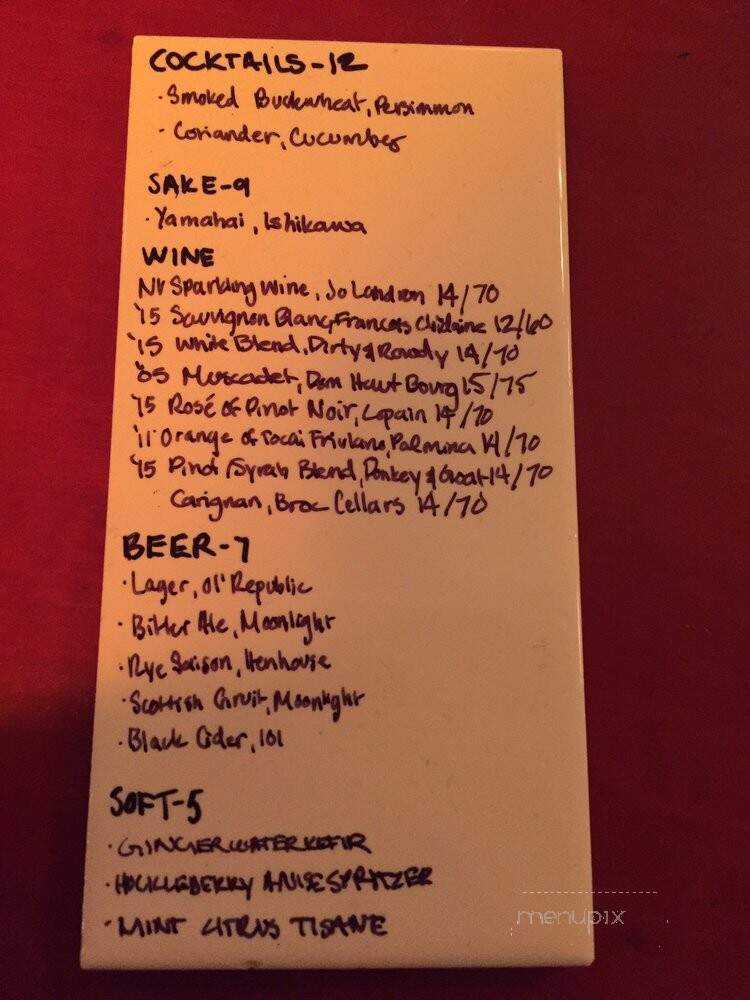 COCKTAILS-12
· Smoked Buckwheat, Persimmon
· Coriander, Cucumber
SAKE-9
· Yamahai, Ishikawa
WINE
NV Sparkling Wine, Jo Landron 14/70
'15 Sauvignon Blanc, Francois Chidaine 12/60
'15 White Blend, Dirty & Rowdy 14/70
'05 Muscadet, Dom Haut Bourg 15/75
'15 Rosé of Pinot Noir, Lopain 14/70
'11 Orange of Tocai Friulano, Palmina 14/70
'15 Pinot/Syrah Blend, Donkey & Goat 14/70
Carignan, Broc Cellars 14/70
BEER-7
· Lager, Ol' Republic
· Bitter Ale, Moonlight
· Rye Saison, Henhouse
· Scottish Gruit, Moonlight
· Black Cider, 101
SOFT-5
· GINGER WATER KEFIR
· HUCKLEBERRY ANISE SPRITZER
· MINT CITRUS TISANE
menupix